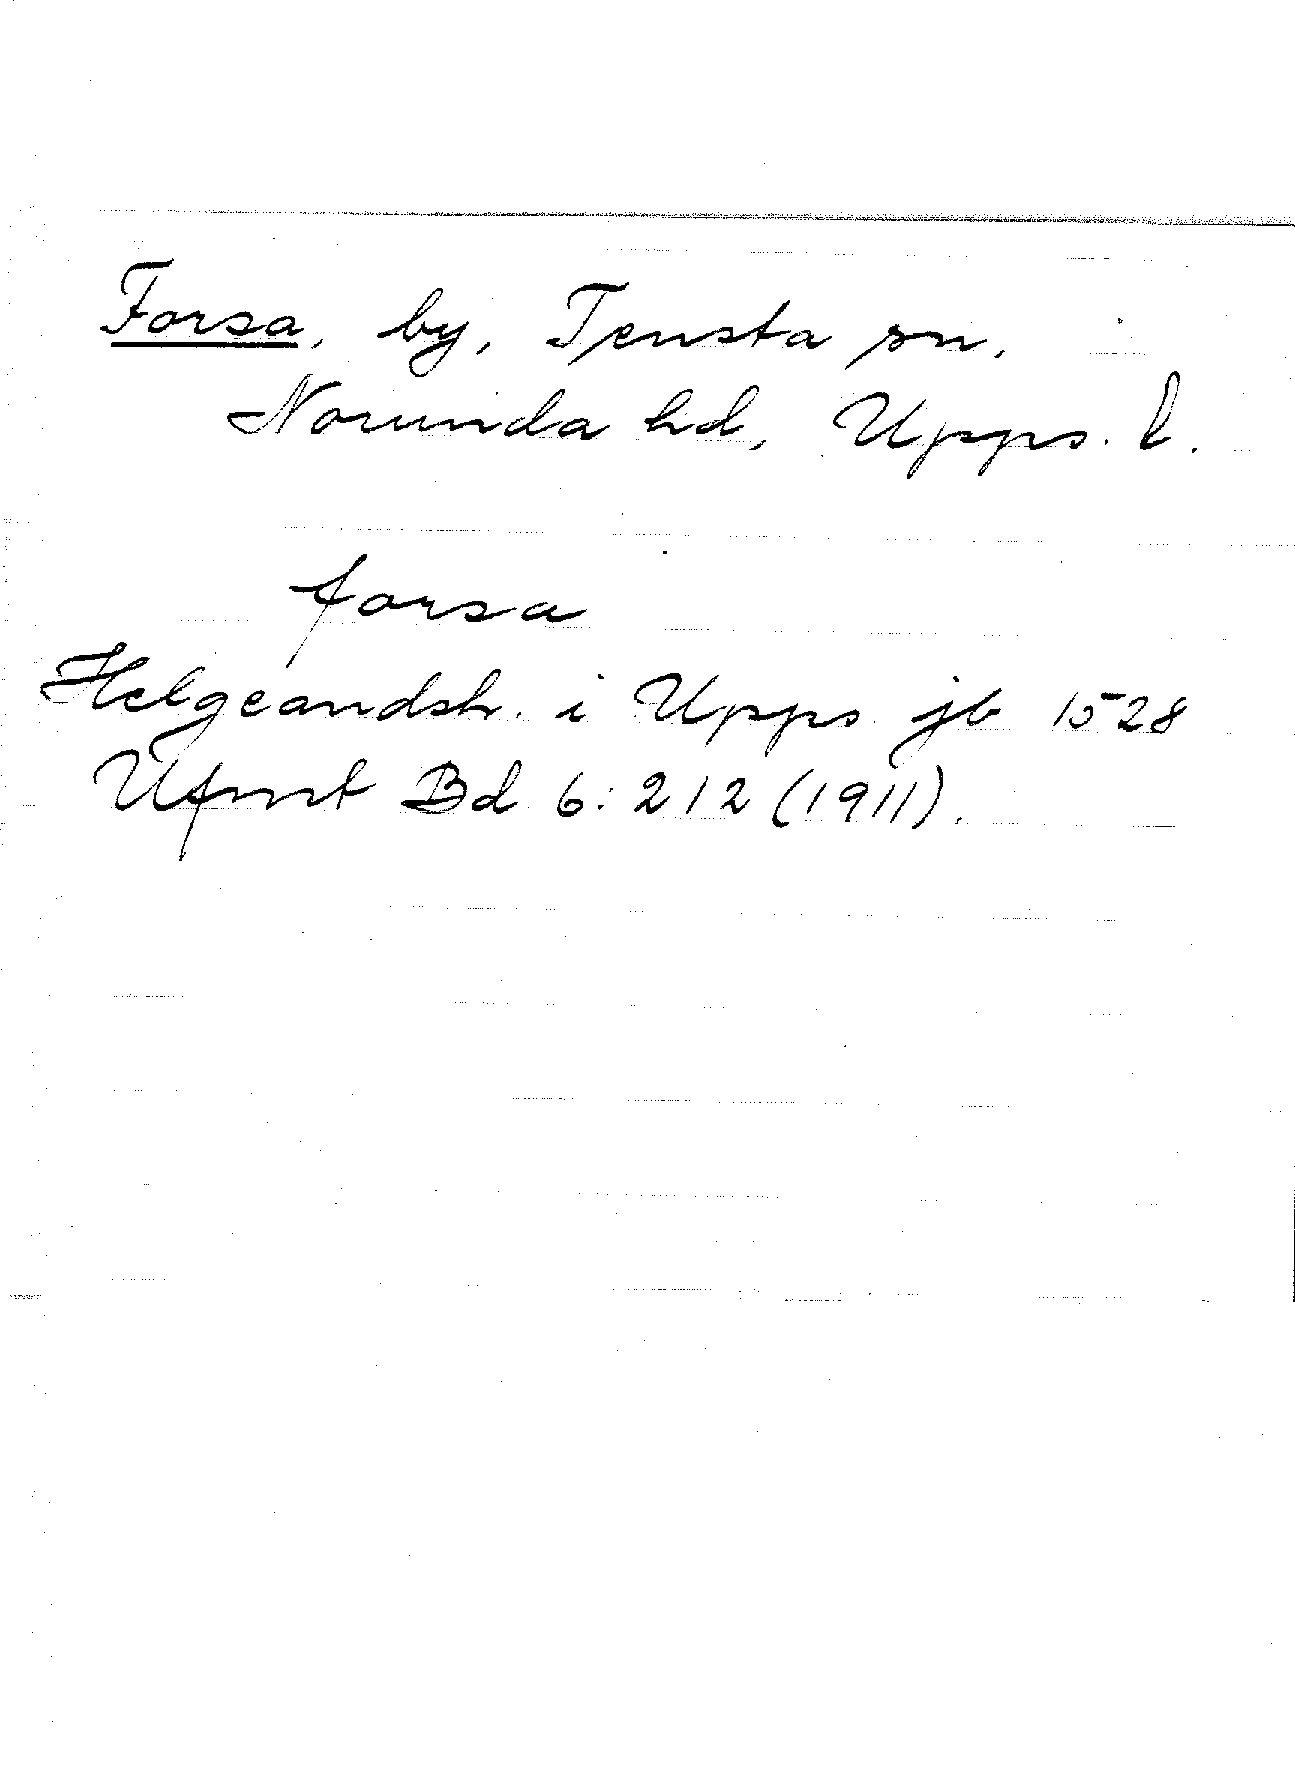 Forsa, by, Tensta sn,
Norunda hd, Upps. l.
forsa
Helgeandsh. i Upps jb 1528
Ufmt Bd 6:212 (1911).